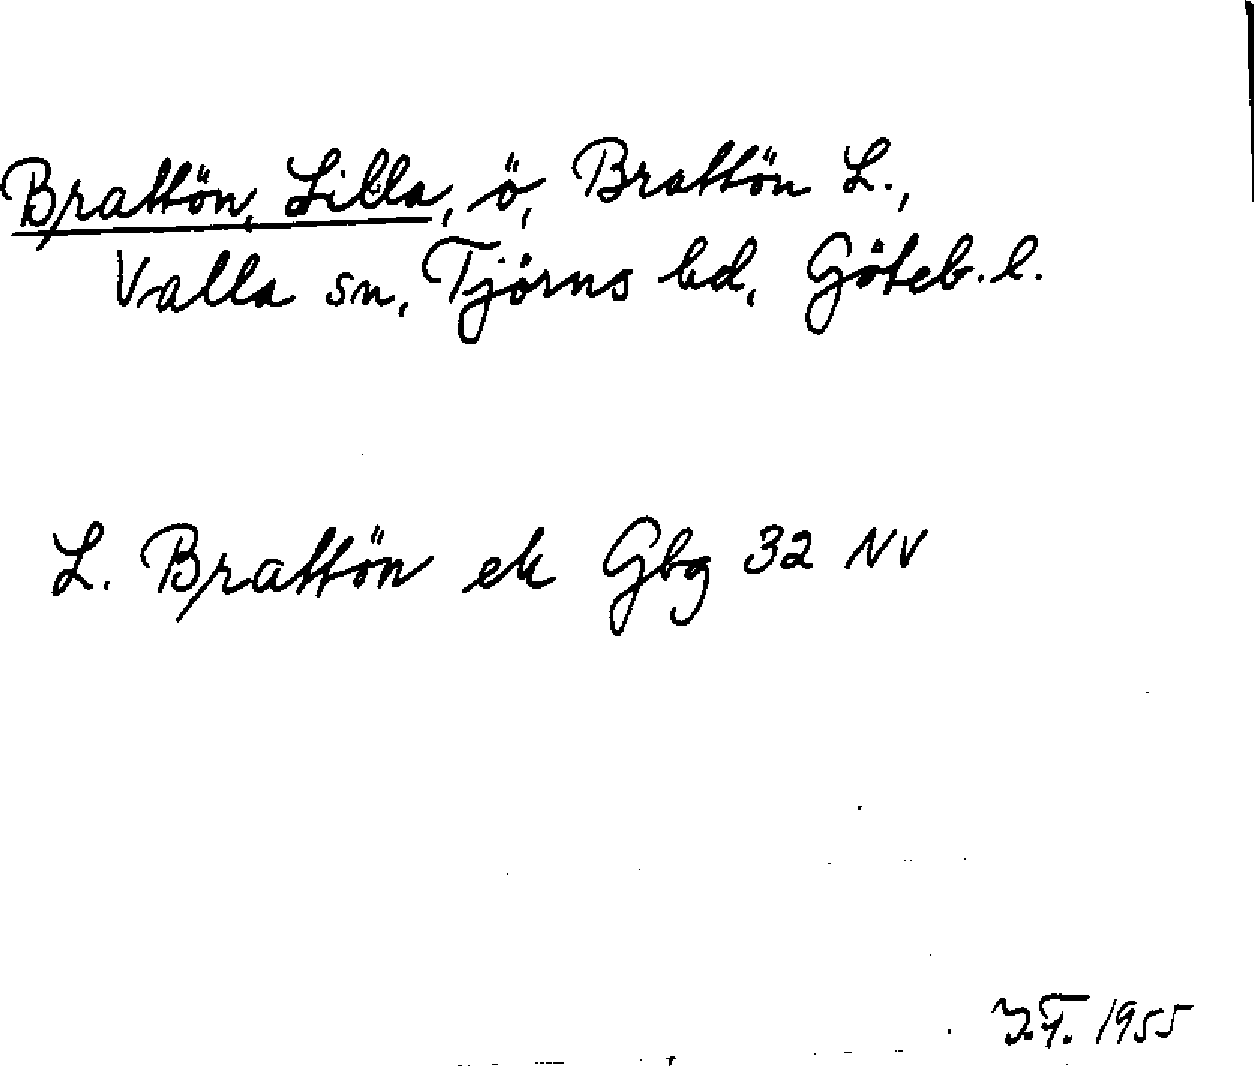 Brattön, Lilla, ö, Brattön L.,
Valla sn, Tjörns hd, Göteb. l.
L. Brattön ek Gbg 32 NV
1955